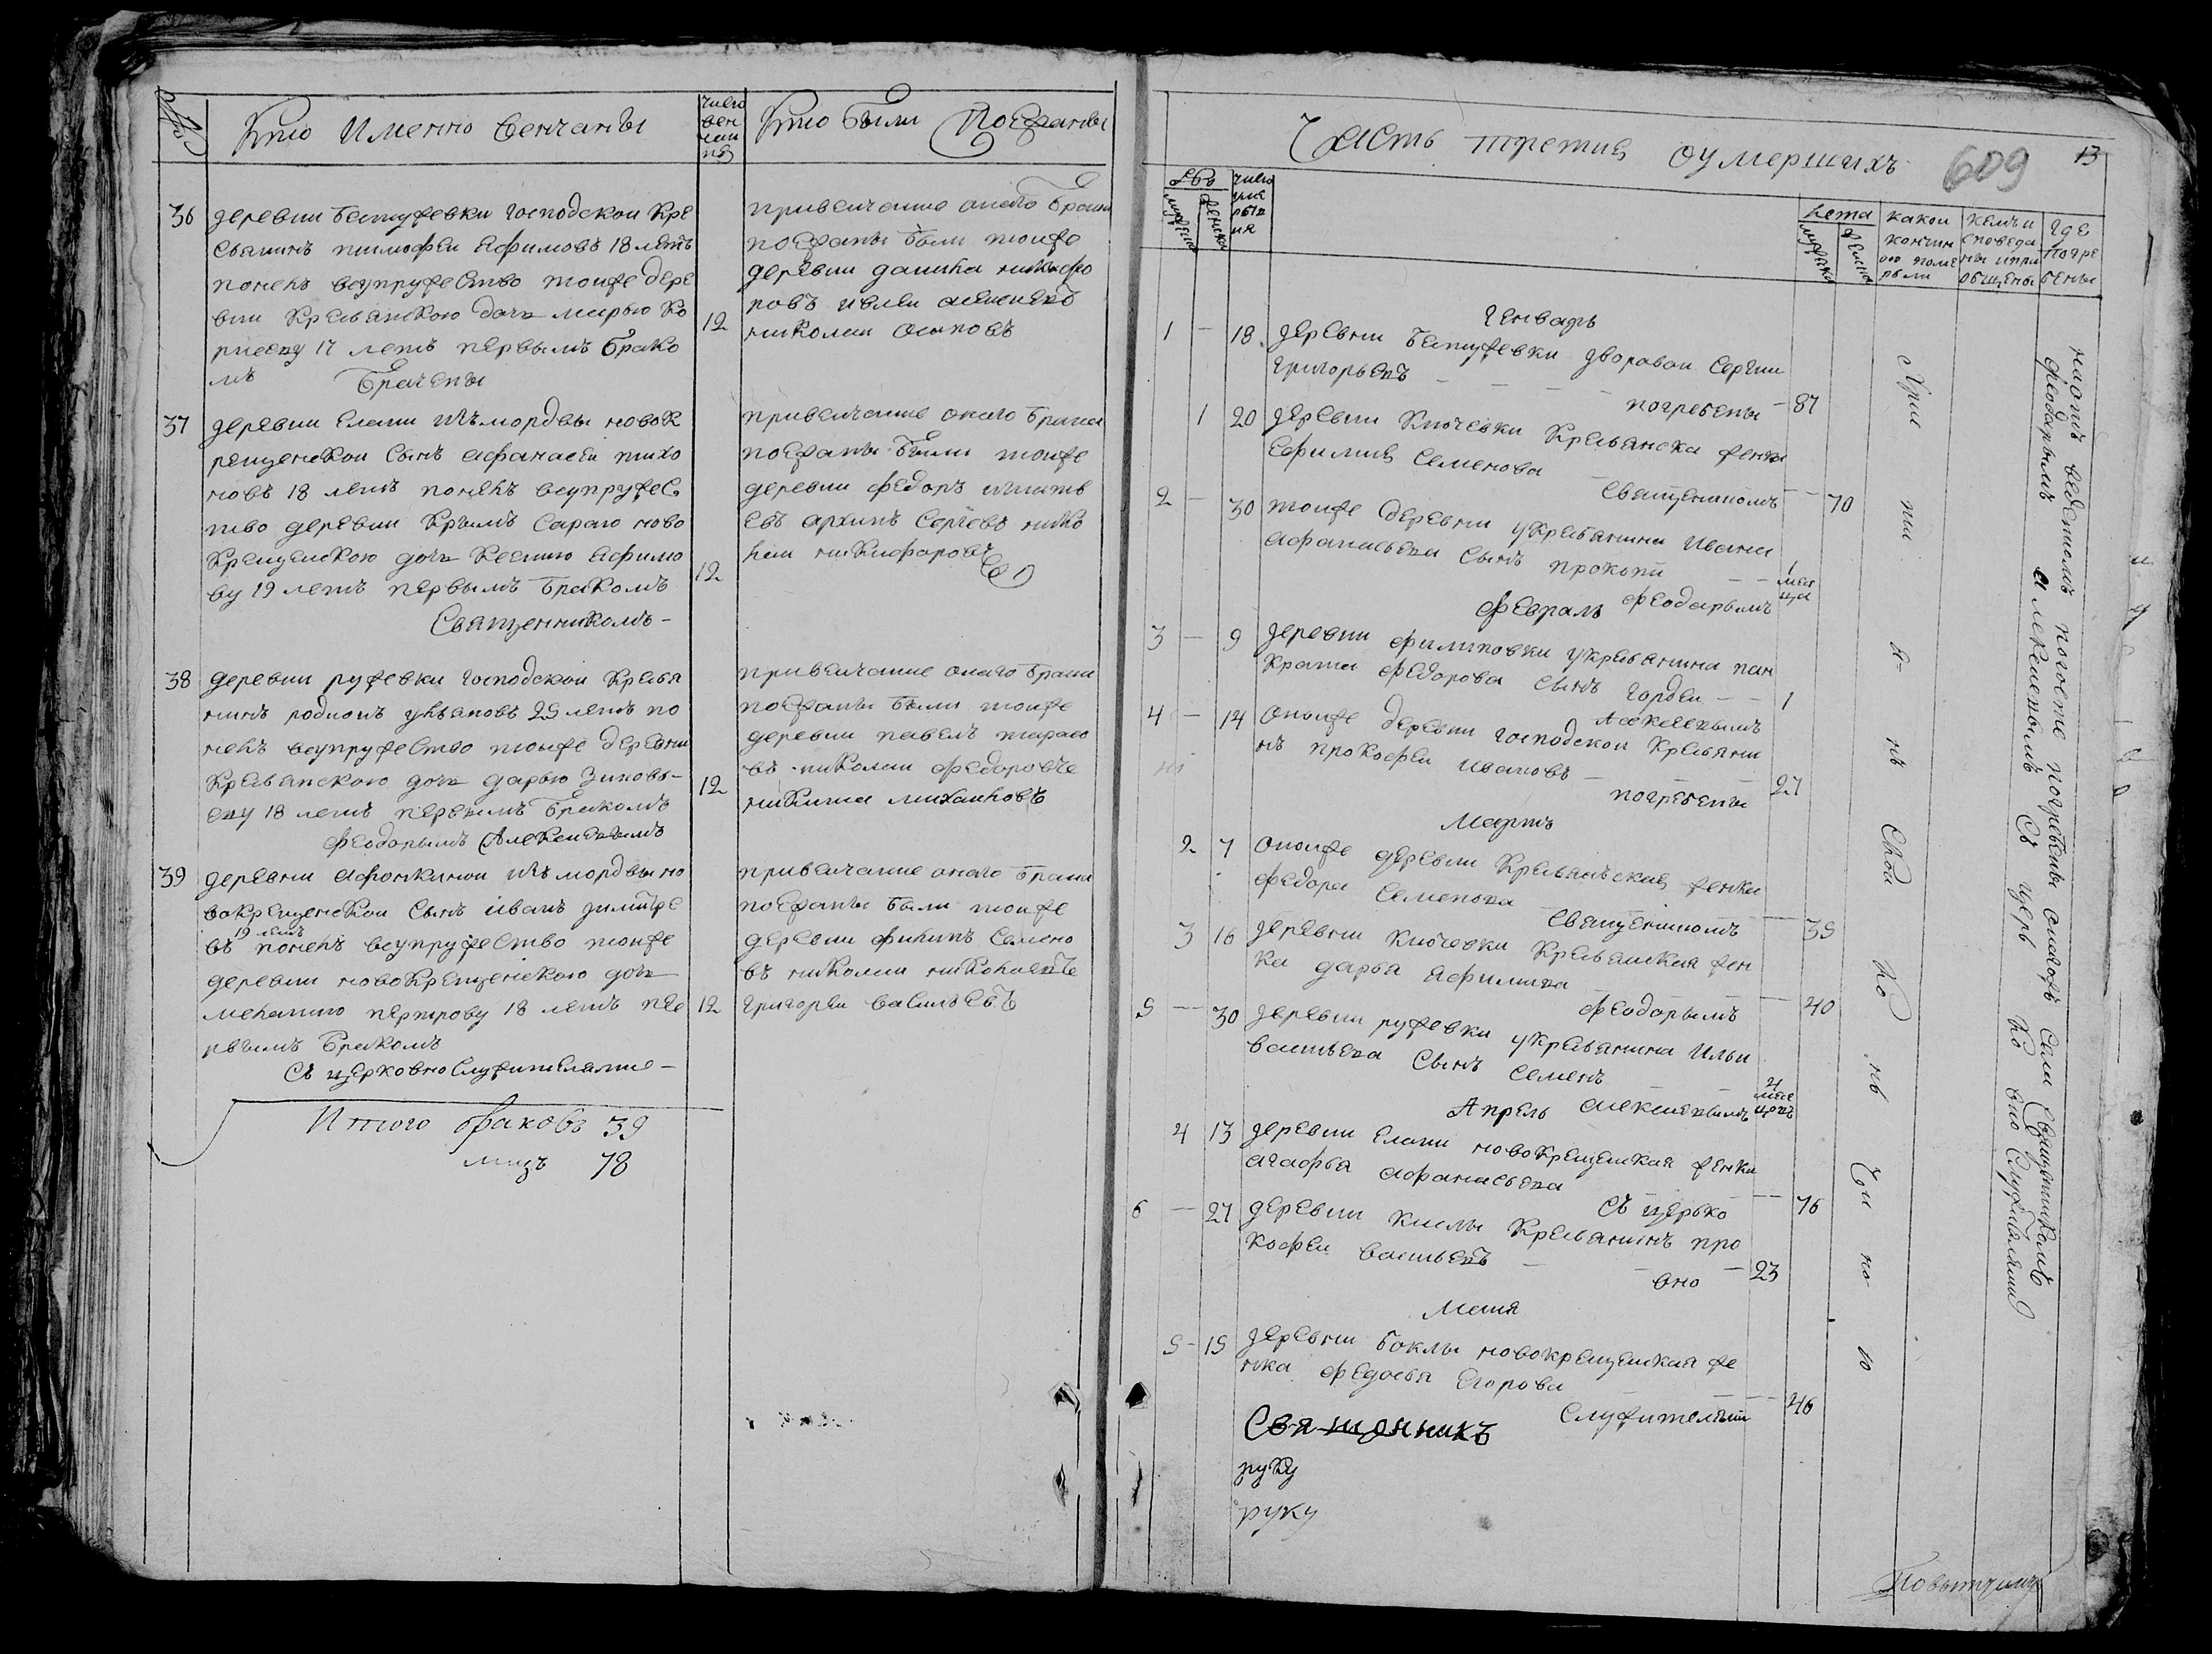 Кто Именно венчаны
число
вен
чан
ия
Кто были Поезжаны
36
деревни Бестужевки господской кре
стьянинъ тимофеи Ефимовъ 18 летъ
понелъ всупружество тоиже дере
вни крестьянскою дочь марью Ко
17 летъ первымъ брако
мъ
12
привенчание онаго брака
поезжаны были тоиже
деревни данила никифо
ровъ
николаи осиповъ
Брачены
37
деревни Елани изъ мордвы новок
рещенской сынъ афанасеи тихо
новъ 18 летъ понелъ всупружес
тво деревни ново
крещенскою дочь Ксению Ефимо
ву 19 летъ первымъ бракомъ
12
привенчание онаго брака
поезжаны были тоиже
деревни федоръ игнать
евъ архипъ Сергевъ нико
лаи никифоровъ
Священникомъ
38
деревни ружевки господской крестья
нинъ родионъ ульяновъ 25 летъ по
нелъ всупружество тоиже деревни
крестьянскою дочь дарью Зиновь
еву 18 летъ первымъ бракомъ
12
привенчание онаго брака
поезжаны были тоиже
деревни павелъ тарасо
въ николаи федоровъ
никита михаиловъ
феодорымъ Алексеевымъ
39
деревни афонкинои изъ мордвы но
вокрещенской сынъ иванъ димитре
19 летъ
въ понелъ всупружество тоиже
деревни новокрещенскою дочь
меланию петрову 18 летъ пе
рвымъ бракомъ
12
привенчание онаго брака
поезжаны были тоиже
деревни филипъ Семено
въ николаи николаевъ
григореи васильевъ
Съ церковнослужителями
Итого браковъ 39
лицъ 78
Часть третия оумершихъ
609
13
число
уме
ртв
ия
мужеска
женска
лета
мужеска
женска
какои
кончин
ою поме
рьли
кемъ и
споведа
ны и при
общены
где
погре
бены
Генварь
1 — 18 деревни Бестужевки дворовои Сергии
григорьевъ — 87
погребены
1 20 деревни Ключевки крестьянска женка
Ефимия Семенова — 70
Священникомъ
2 — 30 тоиже деревни укрестьянина Ивана
афанасьева сынъ прокопи — 1
меся
ца
Февраль Феодорымъ
3 — 9 деревни филиповки укрестьянина пан
крата Федорова сынъ гордеи — 1
Алексеевымъ
4 — 14 оноиже деревни господскои крестьяни
нъ прокофеи ивановъ — 27
погребены
Мартъ
2 7 оноиже деревни крестьянския женка
федора Семенова — 35
Священникомъ
3 16 деревни Ключевки крестьянская жен
ка дарья Ефимова — 40
Феодорымъ
5 — 30 деревни ружевки укрестьянина Ильи
васильева сынъ семенъ
меся
цовъ
Апрель алексеевымъ
4 13 деревни Елани новокрещенская женка
агафья афанасьева — 76
Съ церько
6 — 27 деревни Кислы крестьянинъ про
кофеи васильевъ — 23
вно
Маия
5 — 15 деревни Боклы новокрещенская же
нка федосья Егорова — 46
служительми
Священникъ
руку
руку
Хри
сти
я-
нъ
ско
ю
ко
нъ
чи
но
ю
наомъ ведетомъ погосте погребены онагожъ села Священникомъ
Феодоромъ Алексеевымъ съ церь ко вно служителями
Повытчикъ